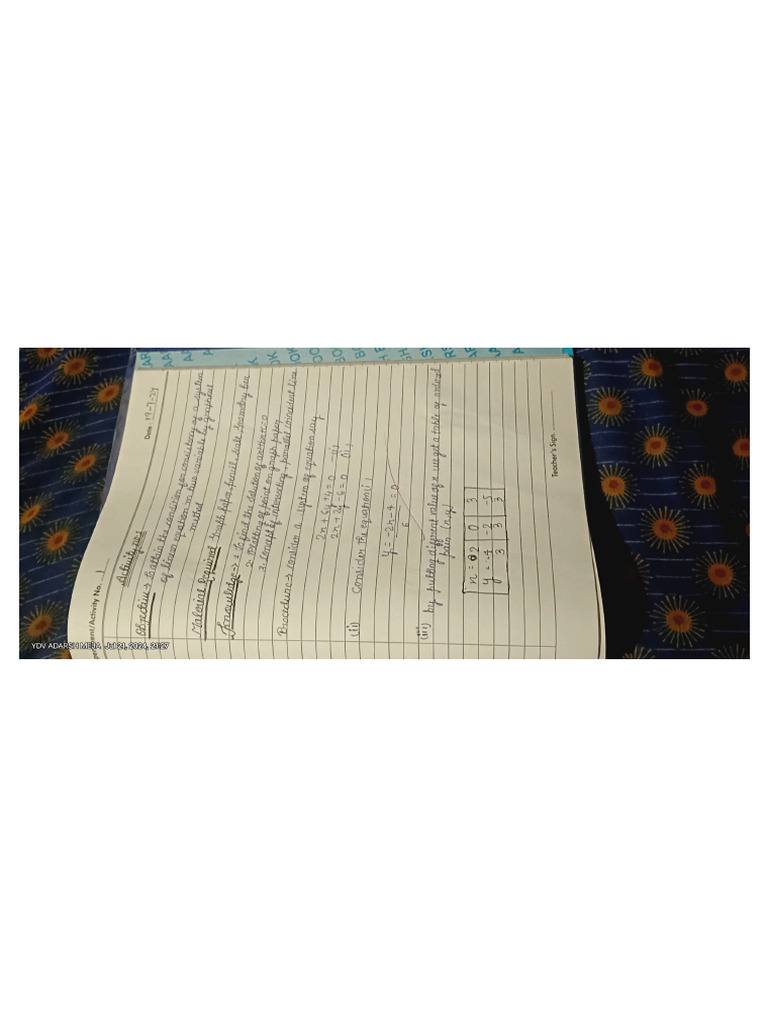 Experiment/Activity No. 1
Date : 19-7-24
Activity no 1
Objective → To attain the condition for consistency of a system
of linear equation in two variable by graphical
method
Material Required Graph paper, pencil, scale, Geometry box
Knowledge → 1. To find the solution of
2. Plotting of point on graph paper
3. Concept of intersecting, parallel, coincident line
Procedure → consider a system of equation say
2x + 6y + 4 = 0 —(i)
2x + 2y - 6 = 0 (ii)
(ii) Consider the equation i
y = -2x - 4 = 0
6
(iii) by putting different value of x we get a table of ordered
pair (x, y)
x = 2 0 3
y = -4 -2 -5
3 3 3
Teacher's Sign. ............
YDV ADARSH MEJA Jul 21, 2024, 21:27